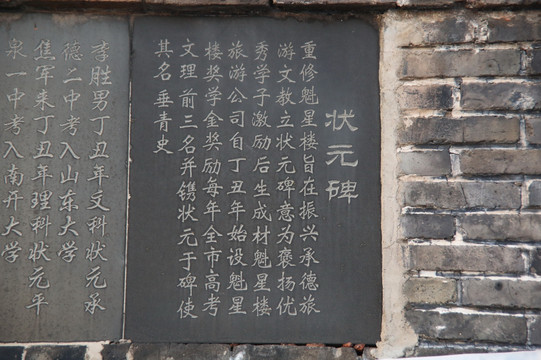 状元碑
重修魁星楼旨在振兴承德旅
游文教立状元碑意为褒扬优
秀学子激励后生成材魁星楼
旅游公司自丁丑年始设魁星
楼奖学金奖励每年全市高考
文理前三名并镌状元于碑使
其名垂青史
李胜男丁丑年文科状元承
德二中考入山东大学
焦军来丁丑年理科状元平
泉一中考入南开大学